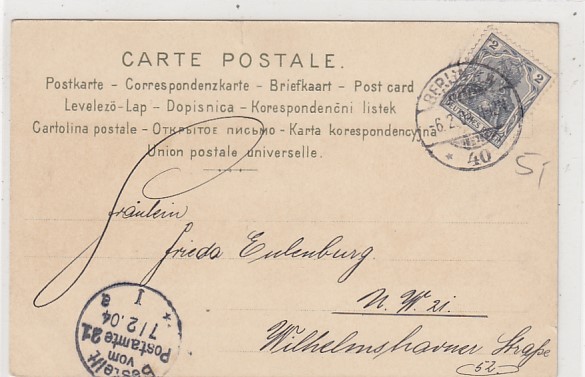 CARTE POSTALE.
Postkarte – Correspondenzkarte – Briefkaart – Post card
Levelező-Lap – Dopisnica – Korespondenční listek
Cartolina postale – Открытое письмо – Karta korespondencyjna
Union postale universelle.
2 2
DEUTSCHES REICH
BERLIN
6.2.
* 40
5,
Fräulein
Frieda Eulenburg
N. W. 21.
Wilhelmshavner Straße
52.
Bestellt
vom
Postamte 21
7/2.04
I
a
*